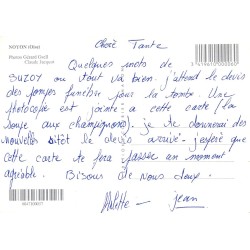 NOYON (Oise)
Chère Tante
Quelques mots de
SUZOY ou tout va bien. j'attend le devis
des pompes funèbre pour la tombe. Une
photocopie est jointe a cette carte (la
soupe aux champignons). je te donnerai des
nouvelles sitôt le devis arrivé. j'espère que
cette carte te fera passée un moment
agréable. Bisous de nous deux.
Arlette - jean